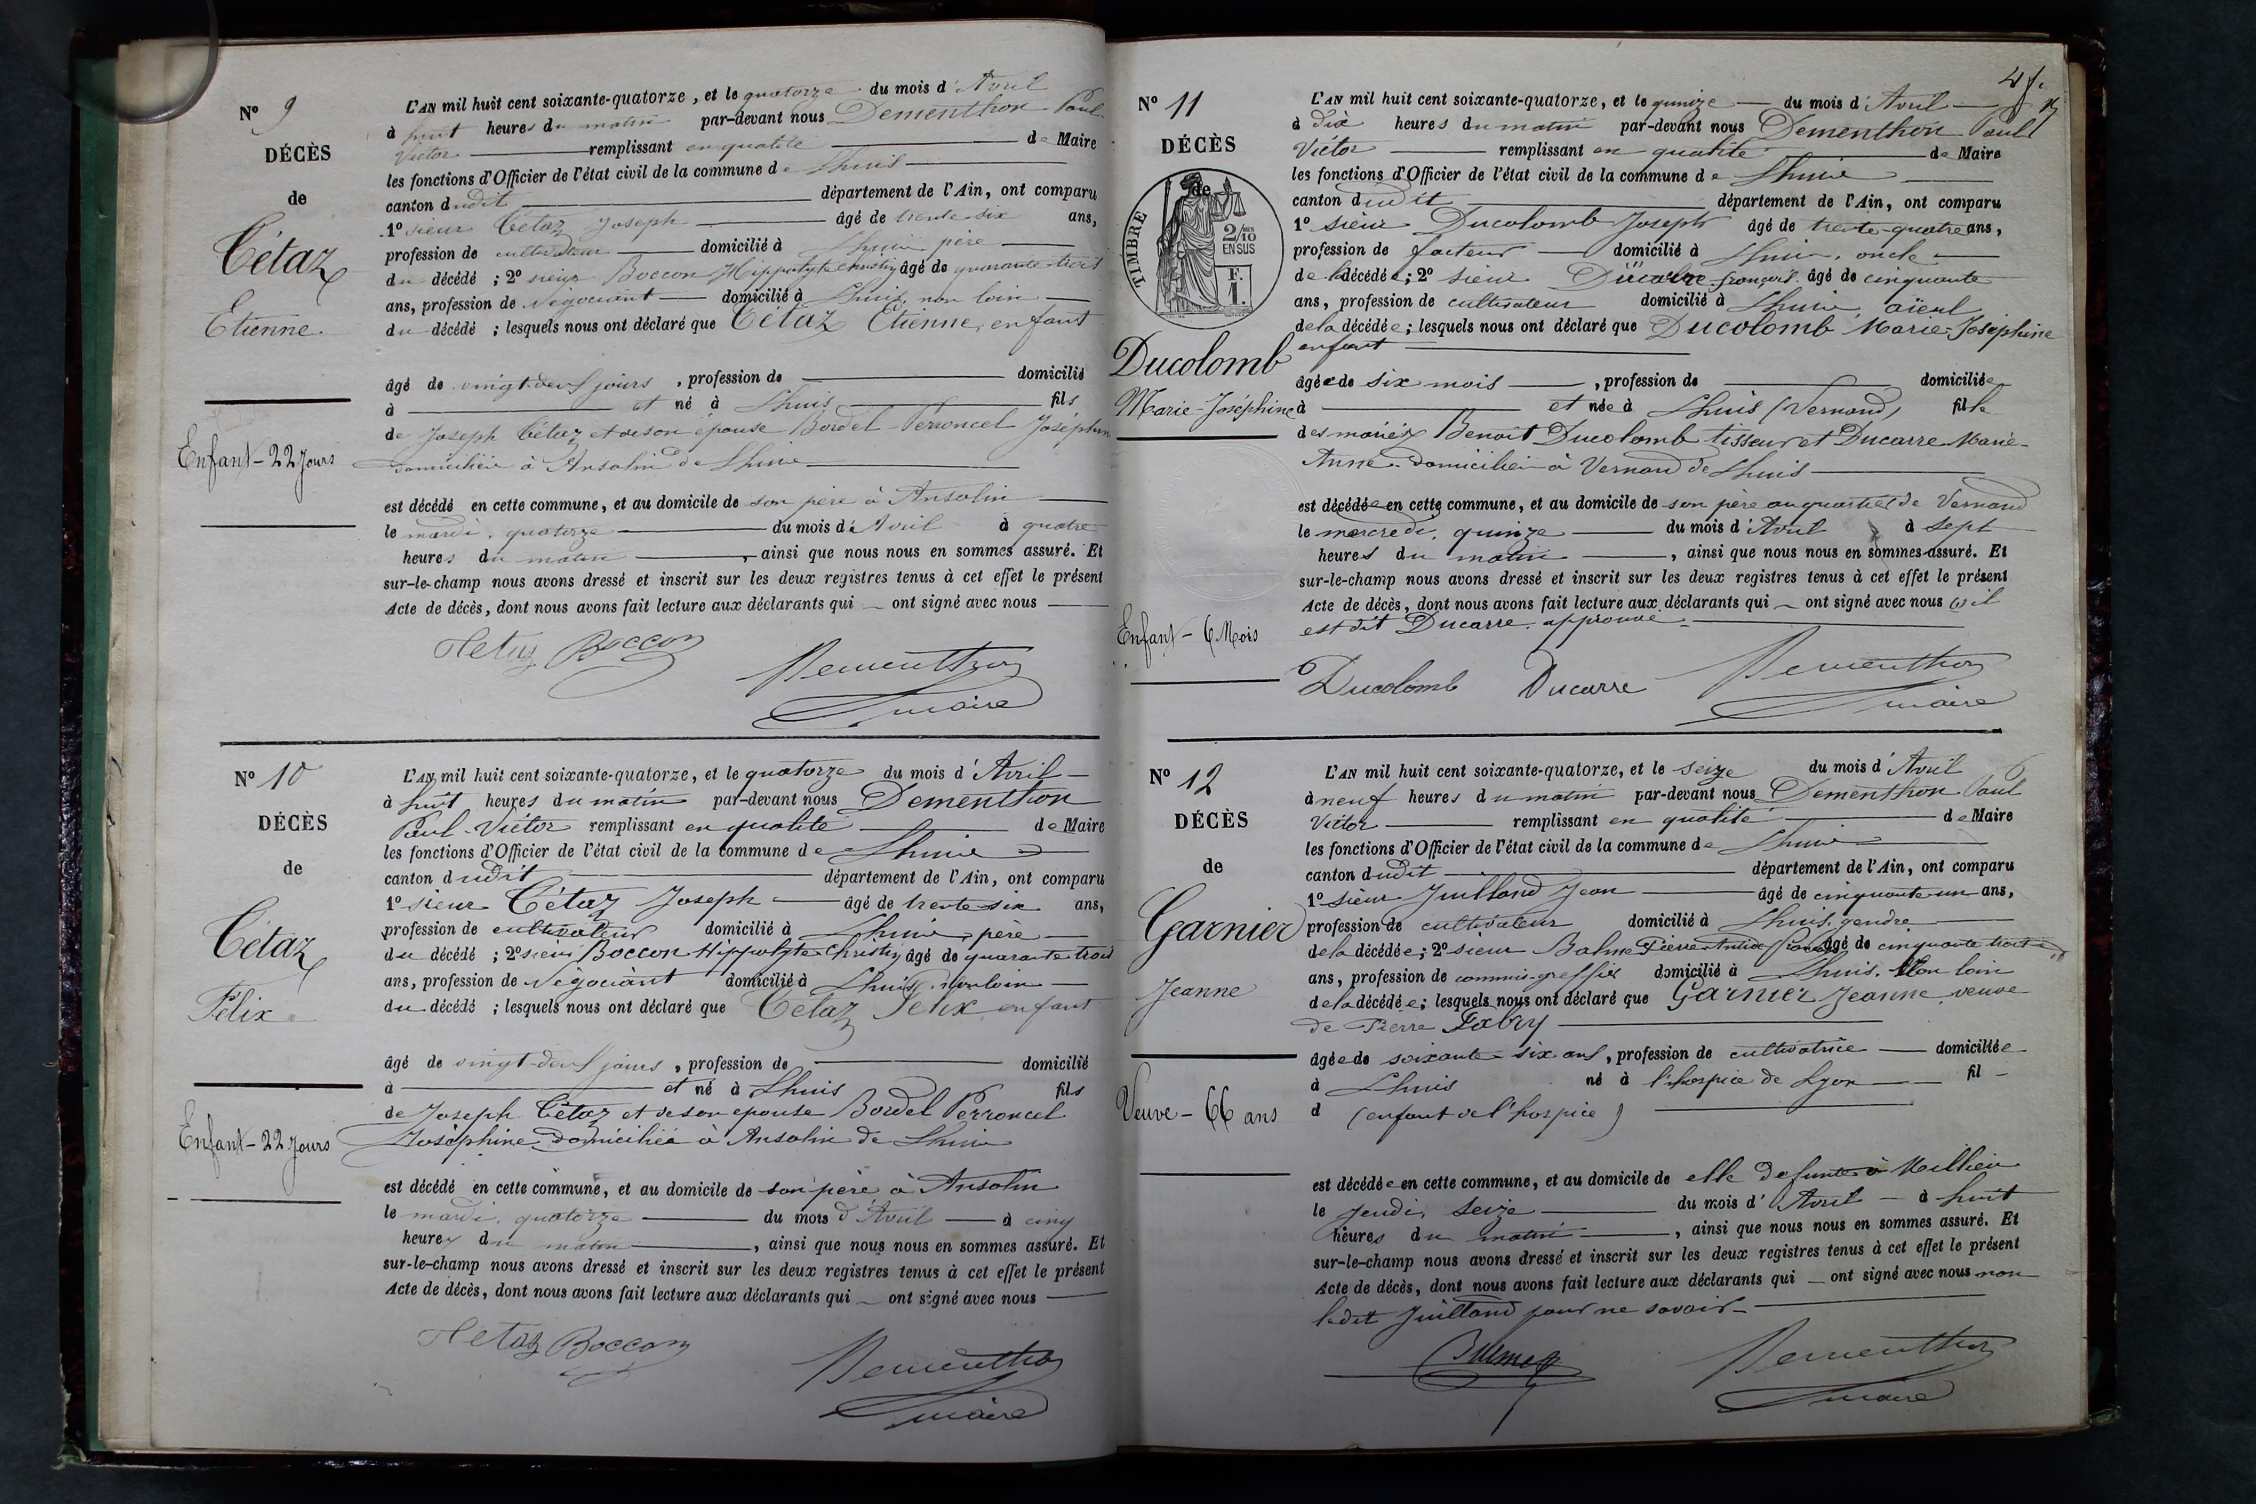 Nº 9
DÉCÈS
de
Cétaz
Etienne.
Enfant - 22 Jours
L'AN mil huit cent soixante-quatorze, et le quatorze du mois d'Avril
à huit heures du matin par-devant nous Dementhon Paul
Victor remplissant en qualité de Maire
les fonctions d'Officier de l'état civil de la commune de Lhuis
canton dudit département de l'Ain, ont comparu
1º sieur Cétaz Joseph âgé de trente-six ans,
profession de cultivateur domicilié à Lhuis père
du décédé ; 2º sieur Boccon Hippolyte Christin âgé de quarante trois
ans, profession de Négociant domicilié à Lhuis, non loin
du décédé ; lesquels nous ont déclaré que Cétaz Etienne, enfant
âgé de vingt-deux jours, profession de domicilié
à et né à Lhuis fils
de Joseph Cétaz et de son épouse Bordel-Perroncel Joséphine
domiciliée à Ansolin de Lhuis
est décédé en cette commune, et au domicile de son père à Ansolin
le mardi, quatorze du mois d'Avril à quatre
heures du matin, ainsi que nous nous en sommes assuré. Et
sur-le-champ nous avons dressé et inscrit sur les deux registres tenus à cet effet le présent
Acte de décès, dont nous avons fait lecture aux déclarants qui ont signé avec nous
Boccon
Dementhon
maire
Nº 10
DÉCÈS
de
Cétaz
Félix
Enfant - 22 Jours
L'AN mil huit cent soixante-quatorze, et le quatorze du mois d'Avril
à huit heures du matin par-devant nous Dementhon
Paul-Victor remplissant en qualité de Maire
les fonctions d'Officier de l'état civil de la commune de Lhuis
canton dudit département de l'Ain, ont comparu
1º sieur Cétaz Joseph âgé de trente-six ans,
profession de cultivateur domicilié à Lhuis, père
du décédé ; 2º sieur Boccon Hippolyte Christin âgé de quarante trois
ans, profession de Négociant domicilié à Lhuis, non loin
du décédé ; lesquels nous ont déclaré que Cétaz Félix enfant
âgé de vingt-deux jours, profession de domicilié
à et né à Lhuis fils
de Joseph Cétaz et de son épouse Bordel Perroncel
Joséphine domiciliée à Ansolin de Lhuis
est décédé en cette commune, et au domicile de son père à Ansolin
le mardi, quatorze du mois d'Avril à cinq
heures du matin, ainsi que nous nous en sommes assuré. Et
sur-le-champ nous avons dressé et inscrit sur les deux registres tenus à cet effet le présent
Acte de décès, dont nous avons fait lecture aux déclarants qui ont signé avec nous
Boccon
Dementhon
maire
Nº 11
DÉCÈS
de
TIMBRE
2/10 EN SUS
F. 1.
Ducolomb
Marie-Joséphine
Enfant - 6 Mois
L'AN mil huit cent soixante-quatorze, et le quinze du mois d'Avril
à dix heures du matin par-devant nous Dementhon Paul
Victor remplissant en qualité de Maire
les fonctions d'Officier de l'état civil de la commune de Lhuis
canton dudit département de l'Ain, ont comparu
1º sieur Ducolomb Joseph âgé de trente-quatre ans,
profession de facteur domicilié à Lhuis, oncle
de la décédée ; 2º sieur françois âgé de cinquante
ans, profession de cultivateur domicilié à Lhuis aïeul
de la décédée ; lesquels nous ont déclaré que Ducolomb Marie-Joséphine
enfant
âgée de six mois, profession de domiciliée
à et née à Lhuis (Vernand) fille
des mariés Benoît Ducolomb tisseur et Ducarre Marie-
Anne domiciliés à Vernand de Lhuis
est décédée en cette commune, et au domicile de son père au quartier de Vernand
le mercredi, quinze du mois d'Avril à sept
heures du matin, ainsi que nous nous en sommes assuré. Et
sur-le-champ nous avons dressé et inscrit sur les deux registres tenus à cet effet le présent
Acte de décès, dont nous avons fait lecture aux déclarants qui ont signé avec nous (1) il
est dit Ducarre. approuvé
Ducolomb Ducarre Dementhon
maire
Nº 12
DÉCÈS
de
Garnier
Jeanne
Veuve - 66 ans
L'AN mil huit cent soixante-quatorze, et le seize du mois d'Avril
à neuf heures du matin par-devant nous Dementhon Paul
Victor remplissant en qualité de Maire
les fonctions d'Officier de l'état civil de la commune de Lhuis
canton dudit département de l'Ain, ont comparu
1º sieur Juilland Jean âgé de cinquante un ans,
profession de cultivateur domicilié à Lhuis, gendre
de la décédée ; 2º sieur Balme Pierre âgé de cinquante trois
ans, profession de commis-greffier domicilié à Lhuis, non loin
de la décédée ; lesquels nous ont déclaré que Garnier Jeanne, veuve
de Pierre Fabry
âgée de soixante-six ans, profession de cultivatrice domiciliée
à Lhuis né à l'hospice de Lyon fil
d (enfant de l'hospice)
est décédée en cette commune, et au domicile de elle defunte à Millieu
le jeudi, seize du mois d'Avril à huit
heures du matin, ainsi que nous nous en sommes assuré. Et
sur-le-champ nous avons dressé et inscrit sur les deux registres tenus à cet effet le présent
Acte de décès, dont nous avons fait lecture aux déclarants qui ont signé avec nous non
ledit Juilland pour ne savoir
Balme
Dementhon
maire